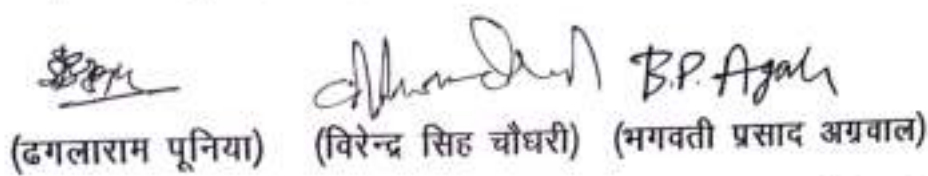 B.P. Agal
(ढगलाराम पूनिया) (विरेन्द्र सिंह चौधरी) (भगवती प्रसाद अग्रवाल)